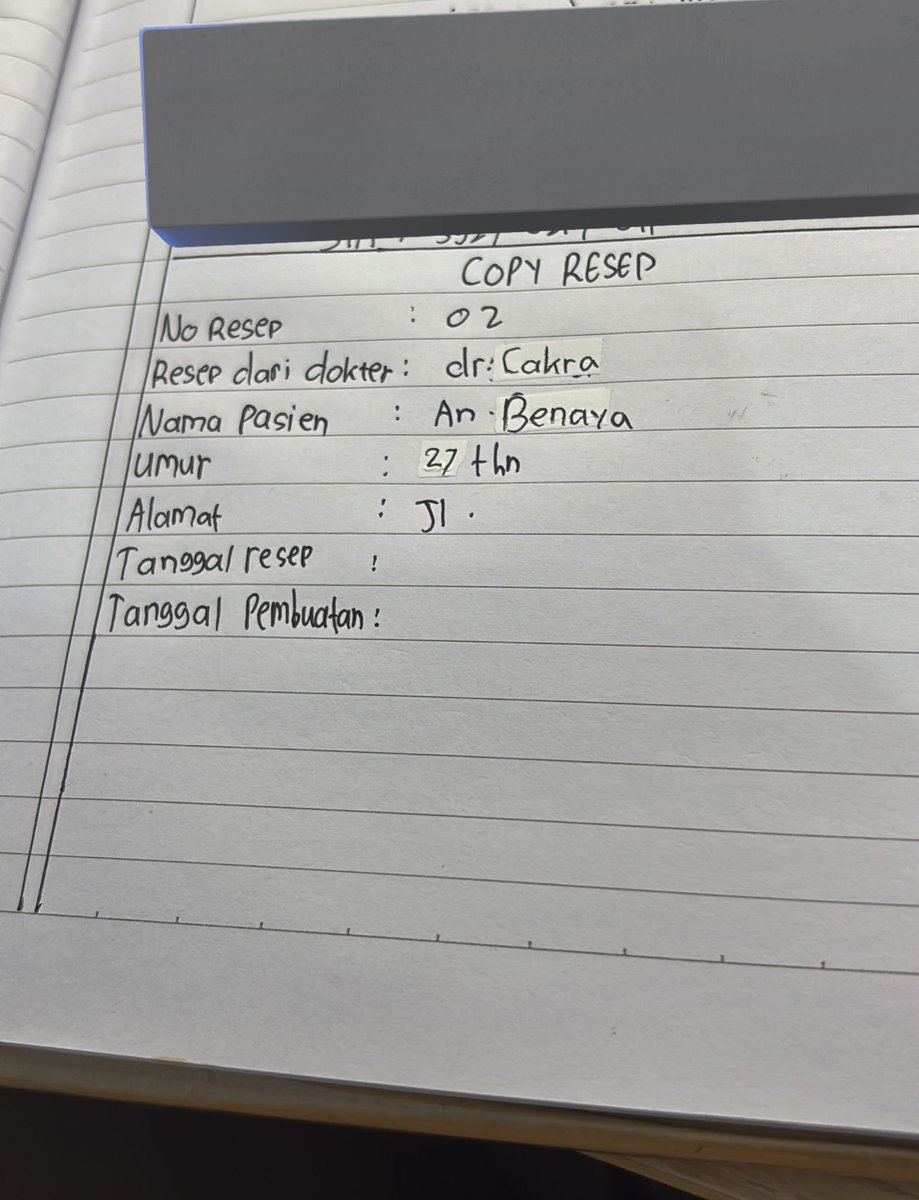 COPY RESEP
No Resep : 02
Resep dari dokter : dr. Cakra
Nama Pasien : An. Benaya
Umur : 27 thn
Alamat : Jl.
Tanggal resep :
Tanggal Pembuatan :